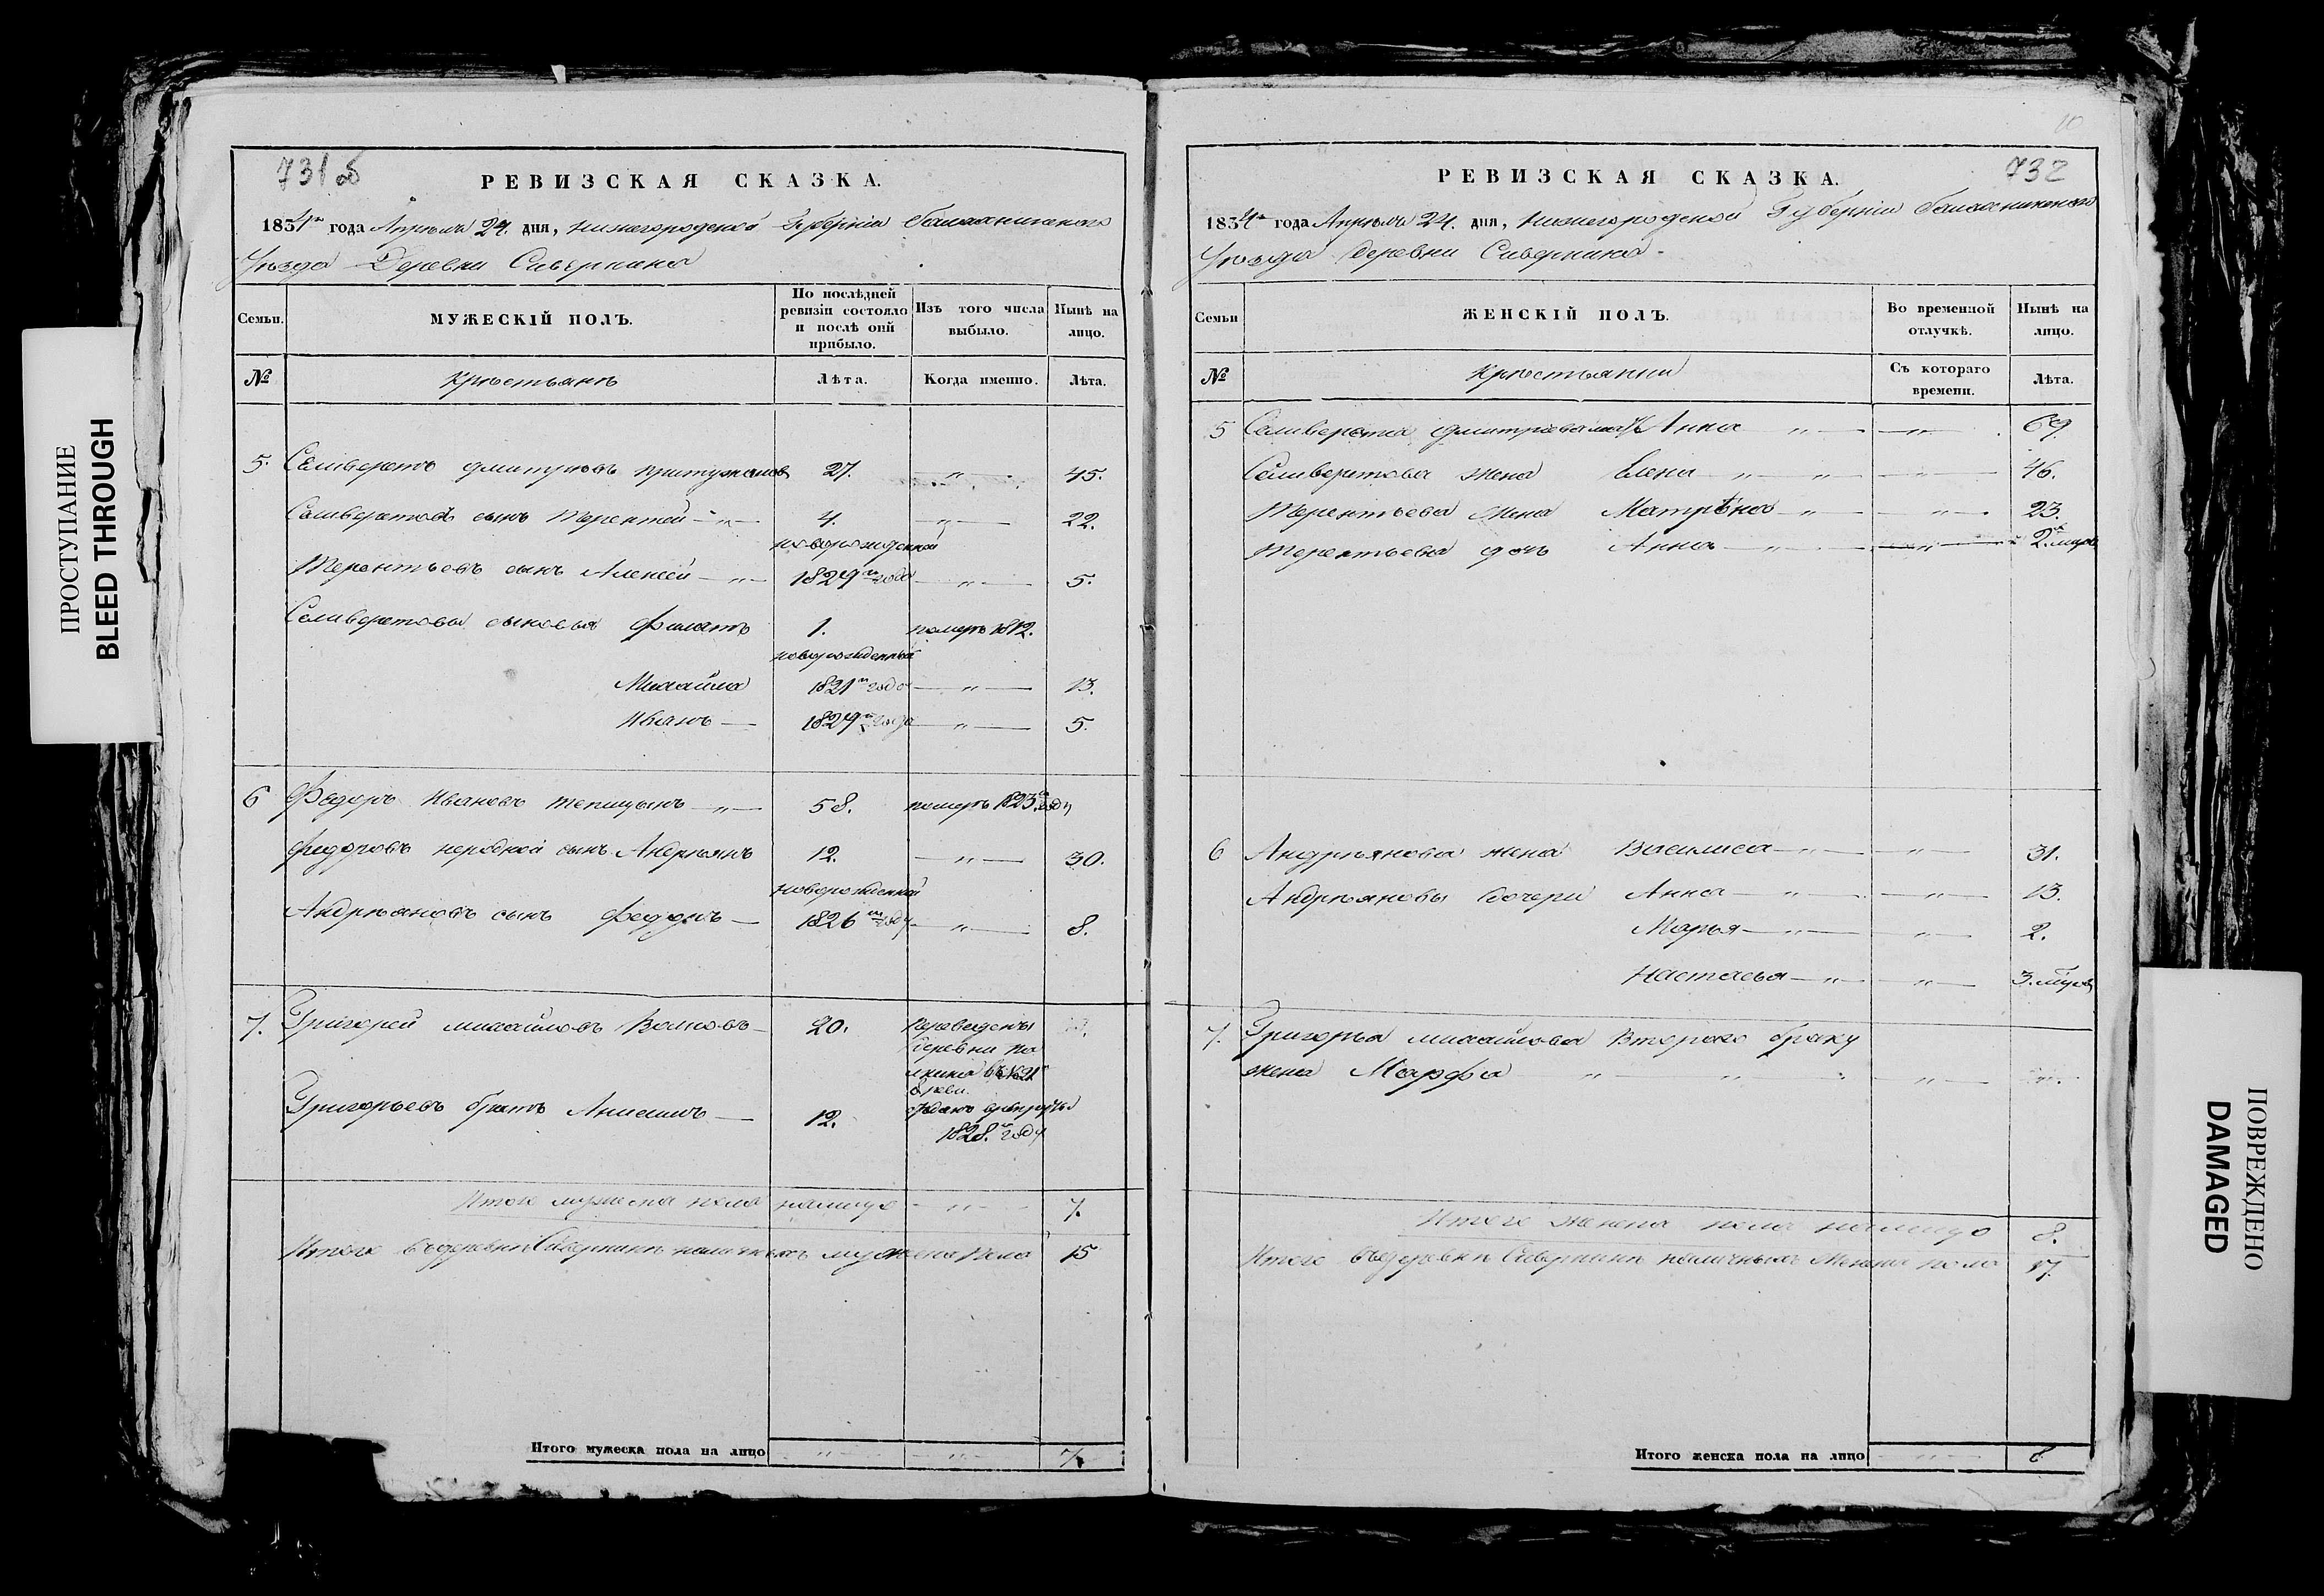 ПРОСТУПАНИЕ
BLEED THROUGH
731об
РЕВИЗСКАЯ СКАЗКА.
1834го года Апреля 24. дня, Нижегородской Губернiи Балахнинскаго
Уезда Деревни Сивернина
Семьи.
МУЖЕСКІЙ ПОЛЪ.
По послѣдней ревизіи состояло и послѣ оній прибыло.
Изъ того числа выбыло.
Нынѣ на лицо.
№
Крестьянъ
Лѣта.
Когда именно.
Лѣта.
5. Селиверстъ Дмитрiевъ 27. „ 45.
Селиверстовъ сынъ Терентей „ 4. „ 22.
новорожденной
Терентьевъ сынъ Алексей „ 1829го года „ 5.
Селиверстовы сыновья Филатъ 1. померъ 1812.
новорожденный
Михайла 1821го года „ 13.
Иванъ 1829го года „ 5.
6 Федоръ Ивановъ „ 58. померъ 1823го году
Федоровъ неродной сынъ Андреянъ 12. „ 30.
новорожденной
Андреяновъ сынъ Федоръ 1826го году „ 8.
7. Григорей Михайловъ Волковъ 20. Переведенъ
деревни
Григорьевъ братъ Анисимъ 12. отданъ в рекруты
1828го году
Итого мужеска пола налицо „ 7.
Итого въ деревне Сивернине наличныхъ мужеска пола 15
Итого мужеска пола на лицо „ „ 7
10
732
РЕВИЗСКАЯ СКАЗКА.
1834го года Апреля 24. дня, Нижегородской Губернiи Балахнинскаго
Уезда Деревни Сивернина
Семьи
ЖЕНСКІЙ ПОЛЪ.
Во временной отлучкѣ.
Нынѣ на лицо.
№
Крестьянки
Съ котораго времени.
Лѣта.
5 Селиверста Дмитрiева мать Анна „ „ 69.
Селиверстова жена Елена „ „ „ 46.
Терентьева жена Матрёна „ „ 23.
Терентьева дочь Анна „ „ 2.
6 Андреянова жена Василиса „ „ 31.
Андреяновы дочери Анна „ „ 13.
Марья „ „ 2.
Настасья „ „ 3.
7. Григорья Михайлова втораго браку
жена Марфа „ „ „
Итого женска пола налицо 8.
Итого въ деревне Сивернине наличныхъ женска пола 17.
Итого женска пола на лицо „ 8
ПОВРЕЖДЕНО
DAMAGED